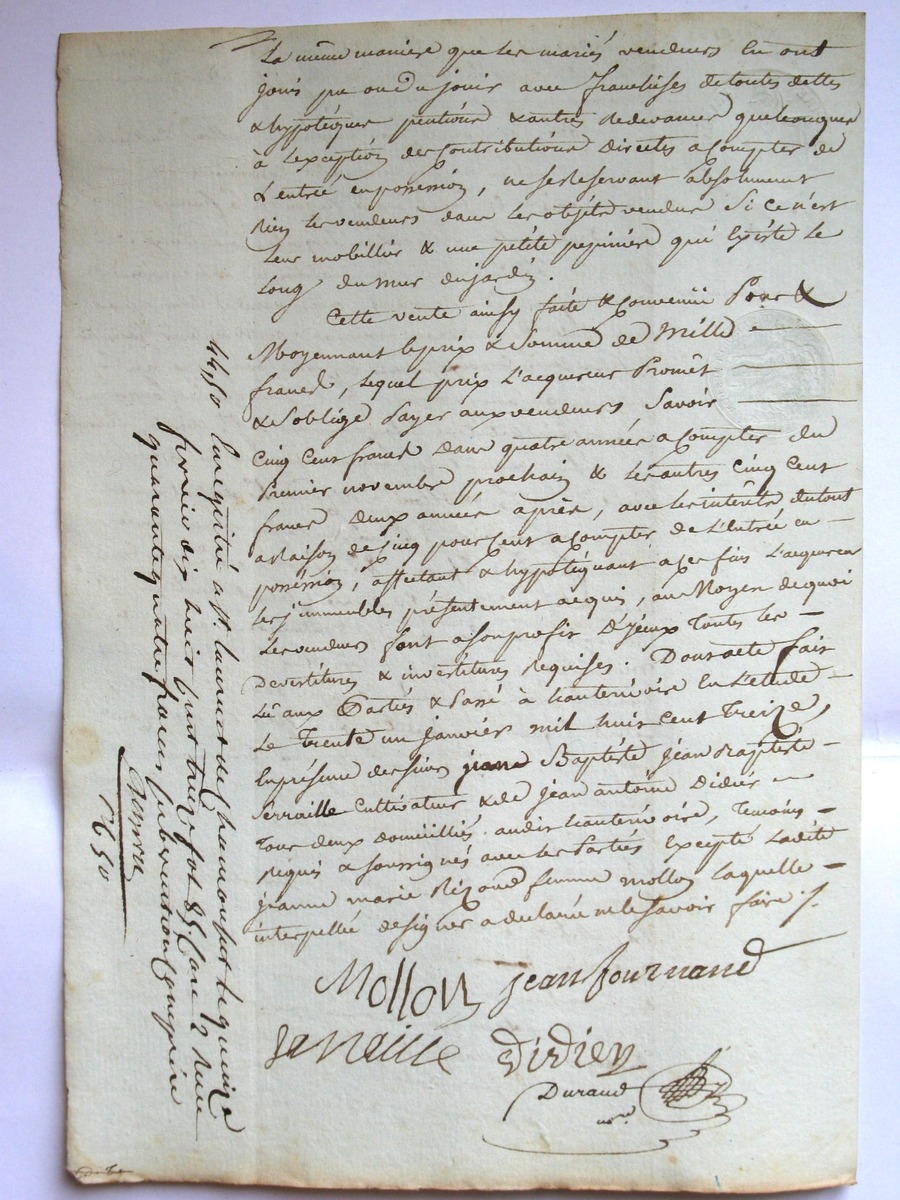 La même maniere que les mariés vendeurs en ont
jouis pu ou du jouir avec franchises de toutes dettes
& hypotèques pentions & autres Redevances quelconques
à L'exception des Contributions directes a Compter de
L'entrée en possession, ne se Reservant absolument
Rien les vendeurs dans les objéts vendus Si ce n'est
leur mobillier & une petite pepiniere qui Existe Le
Long du mur du jardin.
Cette vente ainsy faite & Convenüe Pour &
Moyennant le prix & Somme de Mille
francs, lequel prix L'acquereur Promêt
& s'oblige Payer aux vendeurs Savoir
Cinq Cent francs dans quatre années a Compter du
Premier novembre prochain & les autres Cinq Cent
francs deux années après, avec les intérêts du tout
a Raison de Cinq pour Cent a Compter de L'entrée en
possession, affectant & hypotéquant a ces fins L'acquereur
Les immeubles présentement acquis, au Moyen de quoi
Les vendeurs font a son profit D'jeux Toutes les
Devestitures & investitures Requises. Dont acte fait
Lu aux Parties & Passé à hauterivoire En L'etude
Le Trente un janvier mil huit Cent Treize,
En présence des sieurs Baptiste jean Baptiste
Serraille Cultivateur & de jean antoine Didier
Tous deux Domiciliés audit hauterivoire, Temoins
Requis & soussignés avec les Parties Excepté Ladite
jeanne marie Rézard femme mollon laquelle
interpellée de signer a declaré ne le Savoir faire /.
Mollon jean fournand
serraille didier
Durand
nre
44,50 Enregistré a St. laurent de chamousset le quinze
fevrier dix huit Cent treize fot 85 Case 2 Recu
quarante quatre francs subvention Comprise